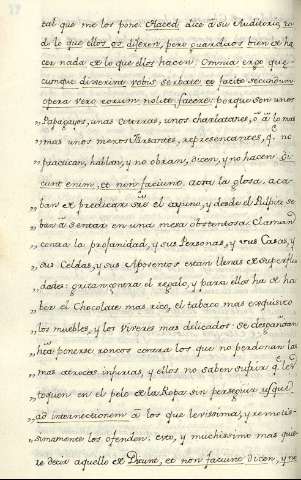 tal que me los pone. Haced dice á su Auditorio, to-
do lo que ellos os dijeren, pero guardaos bien de ha
cer nada de lo que ellos hacen. Omnia ergo quæ-
cumque dixerint vobis servate, et facite secundum
opera vero eorum nolite facere: porque son unos
„Papagayos, unas cotorras, unos charlatanes, ó á lo mas
„mas unos meros Farsantes, representantes, q. no
„practican, hablan, y no obran, dicen, y no hacen. Di
cunt enim, et non faciunt. aora la glosa. aca-
„ban de predicar sre el ayuno, y desde el Pulpito se
„ban á sentar en una mesa obstentosa. Claman
„contra la profanidad, y sus Personas, y sus Casas, y
„sus Celdas, y sus Aposentos estan llenas de superflui
„dades: gritan contra el regalo, y para ellos ha de ha
„ber el Chocolate mas rico, el tabaco mas exquisito
„los muebles, y los viveres mas delicados: se desgañitan
„hta ponerse roncos contra los que no perdonan las
„mas atroces injurias, y ellos no saben sufrir q. les
„toquen en el pelo de la Ropa sin perseguir usque
„ad internectionem á los que levissima, y remotis-
„simamente los ofenden. esto, y muchissimo mas quie-
„re decir aquello de Dicunt, et non faciunt dicen, y no